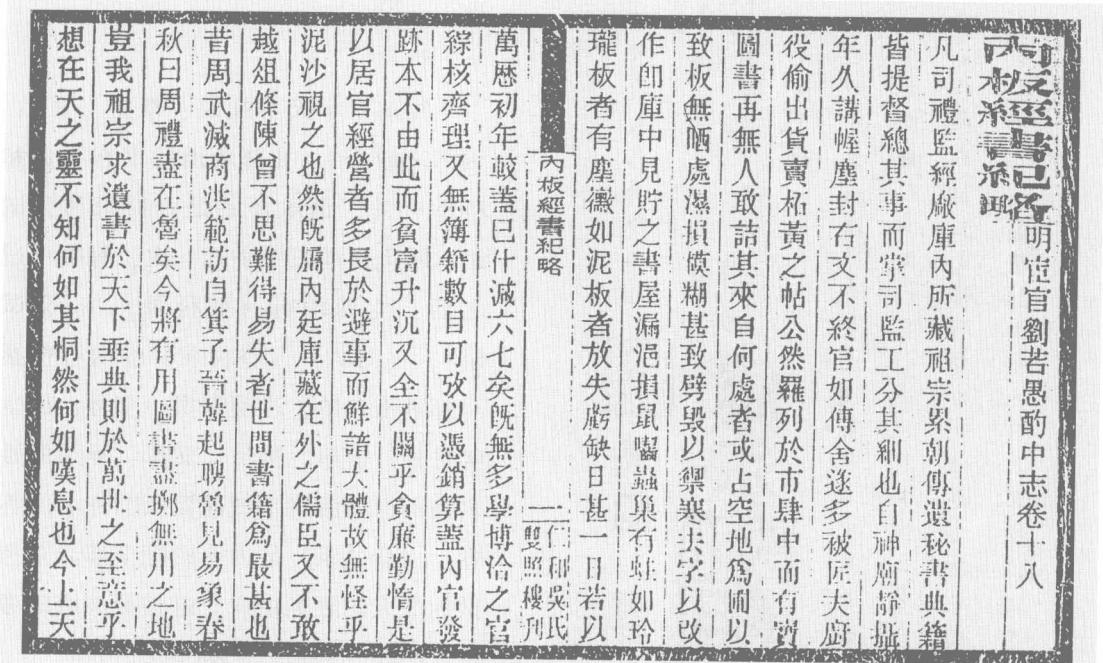 內板經書紀略 明宦官劉若愚酌中志卷十八
凡司禮監經廠庫內所藏祖宗累朝傳遺秘書典籍
皆提督總其事而掌司監工分其細也自神廟靜攝
年久講幄塵封右文不終官如傳舍遂多被匠夫廚
役偷出貨賣柘黃之帖公然羅列於市肆中而有寶
圖書再無人敢詰其來自何處者或占空地為圃以
致板無晒處濕損模糊甚致劈毀以禦寒去字以改
作卽庫中見貯之書屋漏浥損鼠嚙蟲巢有蛀如玲
瓏板者有塵黴如泥板者放失虧缺日甚一日若以
內板經書紀略
一
仁和吳氏
雙照樓刊
萬曆初年較蓋已什減六七矣旣無多學博洽之官
綜核齊理又無簿籍數目可攷以憑銷算蓋內官發
跡本不由此而貧富升沉又全不關乎貪廉勤惰是
以居官經營者多長於避事而鮮諳大體故無怪乎
泥沙視之也然旣屬內廷庫藏在外之儒臣又不敢
越俎條陳曾不思難得易失者世間書籍爲最甚也
昔周武滅商洪範訪自箕子晉韓起聘魯見易象春
秋曰周禮盡在魯矣今將有用圖書盡擲無用之地
豈我祖宗求遺書於天下垂典則於萬世之至意乎
想在天之靈不知何如其恫然何如嘆息也今上天